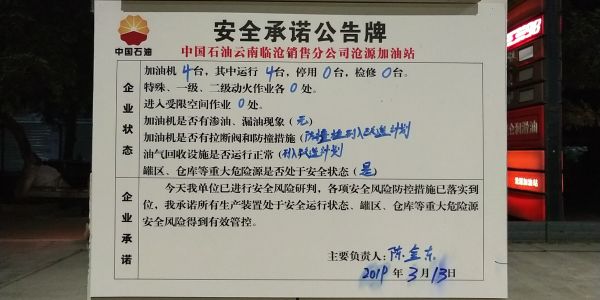 安全承诺公告牌
中国石油
中国石油云南临沧销售分公司沧源加油站
企业状态
加油机 4 台，其中运行 4 台，停用 0 台，检修 0 台。
特殊、一级、二级动火作业各 0 处。
进入受限空间作业 0 处。
加油机是否有渗油、漏油现象（无）
加油机是否有拉断阀和防撞措施（防撞柱列入改造计划
油气回收设施是否运行正常（列入改造计划
罐区、仓库等重大危险源是否处于安全状态（是）
企业承诺
今天我单位已进行安全风险研判，各项安全风险防控措施已落实到
位，我承诺所有生产装置处于安全运行状态、罐区、仓库等重大危险源
安全风险得到有效管控。
主要负责人：陈金东
2019 年 3 月 13 日
仑润滑油
沧源加油站